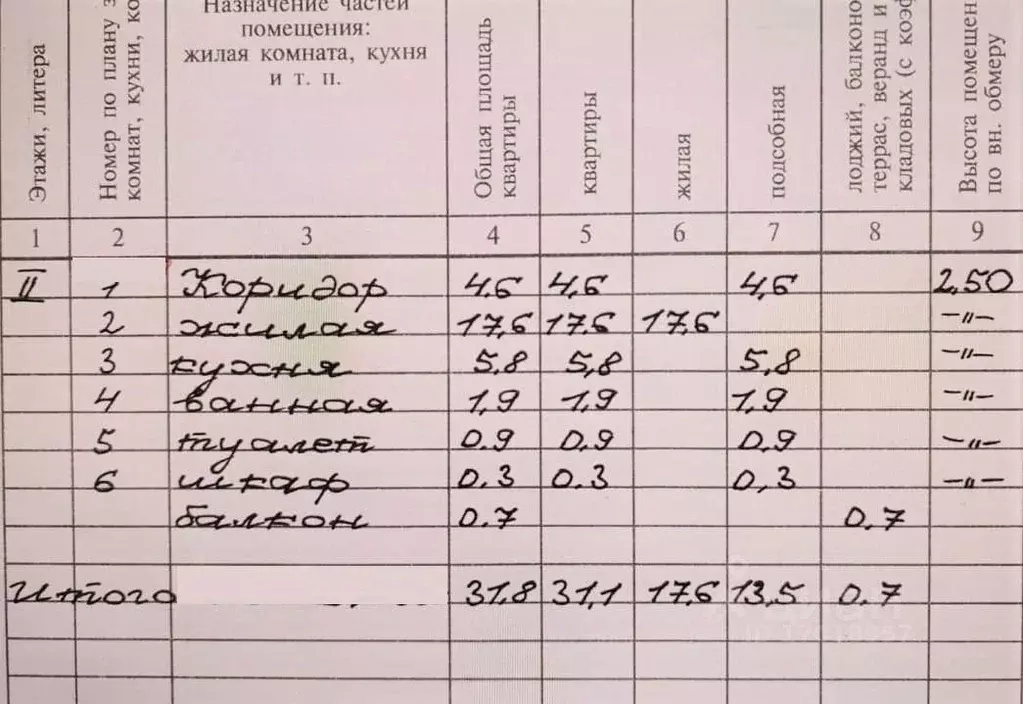 Этажи, литера
Номер по плану
комнат, кухни,
Назначение частей
помещения:
жилая комната, кухня
и т. п.
Общая площадь
квартиры
квартиры
жилая
подсобная
лоджий,
террас, веранд и
кладовых (с
Высота
по вн. обмеру
1 2 3 4 5 6 7 8 9
II 1 Коридор 4,6 4,6 4,6 2,50
2 жилая 17,6 17,6 17,6 -"-
3 кухня 5,8 5,8 5,8 -"-
4 ванная 1,9 1,9 1,9 -"-
5 туалет 0.9 0.9 0.9 -"-
6 шкаф 0.3 0.3 0,3 -"-
балкон 0.7 0.7
Итого 31,8 31,1 17,6 13,5 0.7